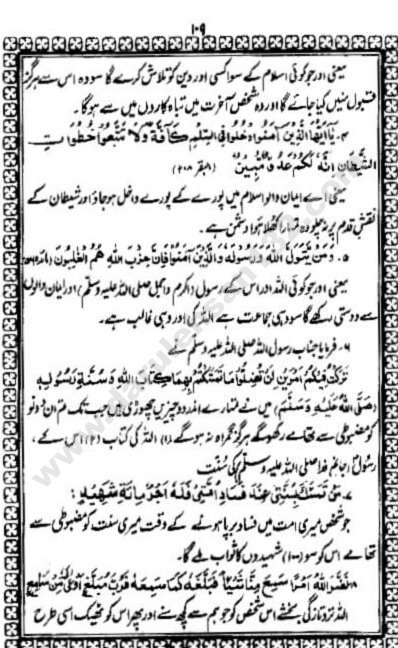 ۱۰۹
یعنی اور جو کوئی اسلام کے سوا کسی اور دین کو تلاش کرے گا سو وہ اس سے ہرگز
قبول نہیں کیا جائے گا اور وہ شخص آخرت میں تباہ کاروں میں سے ہوگا۔
۴۔ یٰاَیُّهَا الَّذِیْنَ اٰمَنُوا ادْخُلُوْا فِی السِّلْمِ كَآفَّةً وَلَا تَتَّبِعُوْا خُطُوَاتِ
الشَّیْطَانِ اِنَّهٗ لَكُمْ عَدُوٌّ مُّبِیْنٌ (بقر ۲۰۸)
یعنی اے ایمان والو اسلام میں پورے کے پورے داخل ہو جاؤ اور شیطان کے
نقش قدم پر نہ چلو وہ تمہارا کھلا ہوا دشمن ہے۔
۵۔ وَمَنْ یَّتَوَلَّ اللّٰهَ وَرَسُوْلَهٗ وَالَّذِیْنَ اٰمَنُوْا فَاِنَّ حِزْبَ اللّٰهِ هُمُ الْغٰلِبُوْنَ
یعنی اور جو کوئی اللہ اور اس کے رسول (اکرم و اجمل صلی اللہ علیہ وسلم) اور ایمان والوں
سے دوستی رکھے گا سو وہی جماعت ہے اللہ کی اور وہی غالب ہے۔
۶۔ فرمایا جناب رسول اللہ صلی اللہ علیہ وسلم نے
تَرَكْتُ فِیْكُمْ اَمْرَیْنِ لَنْ تَضِلُّوْا مَا تَمَسَّكْتُمْ بِهِمَا كِتَابَ اللّٰهِ وَسُنَّةَ رَسُوْلِهٖ
(صَلَّی اللّٰهُ عَلَیْهِ وَسَلَّمَ) میں نے تمہارے اندر دو چیزیں چھوڑی ہیں جب تک تم ان دونو
کو مضبوطی سے تھامے رکھو گے ہرگز گمراہ نہ ہو گے (۱) اللہ کی کتاب (۲) اس کے
رسول صلی اللہ علیہ وسلم کی سنت
۷۔ مَنْ تَمَسَّكَ بِسُنَّتِیْ عِنْدَ فَسَادِ اُمَّتِیْ فَلَهٗ اَجْرُ مِائَةِ شَهِیْدٍ:
جو شخص میری امت میں فساد برپا ہونے کے وقت میری سنت کو مضبوطی سے
تھامے اس کو سو (۱۰۰) شہیدوں کا ثواب ملے گا۔
۸۔ نَضَّرَ اللّٰهُ اَمْرَاً سَمِعَ مِنَّا شَیْئاً فَبَلَّغَهٗ كَمَا سَمِعَهٗ فَرُبَّ مُبَلَّغٍ اَوْعٰی مِنْ سَامِعٍ
اللہ تروتازگی بخشے اس شخص کو جو ہم سے کچھ سنے اور پھر اس کو ٹھیک اسی طرح